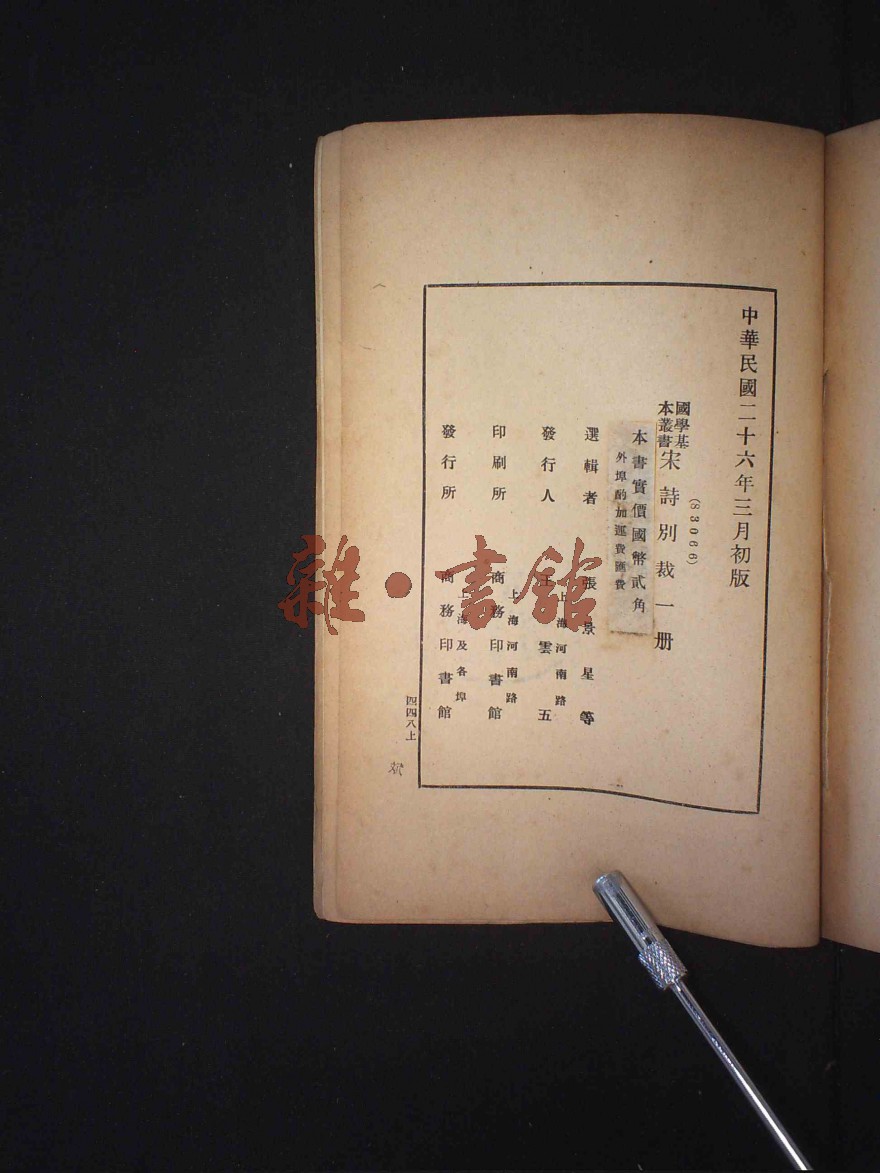 中華民國二十六年三月初版
(S3066)
國學基
本叢書
宋詩別裁一册
本書實價國幣貳角
外埠酌加運費匯費
選輯者 張景星等
發行人 王雲五
上海河南路
印刷所 商務印書館
上海河南路
發行所 商務印書館
上海及各埠
四四八上
雜·書館